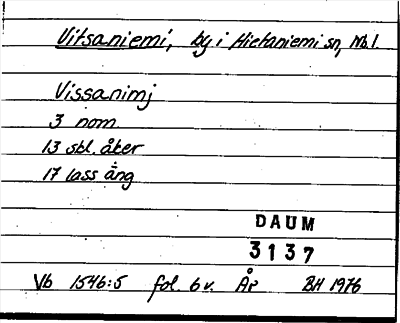 Vitsaniemi, by i Hietaniemi sn, Nb.l.
Vissanimj
3 nom
13 skl. åker
17 lass äng
DAUM
3137
Vb 1546:5 fol. 6 v. År BH 1976